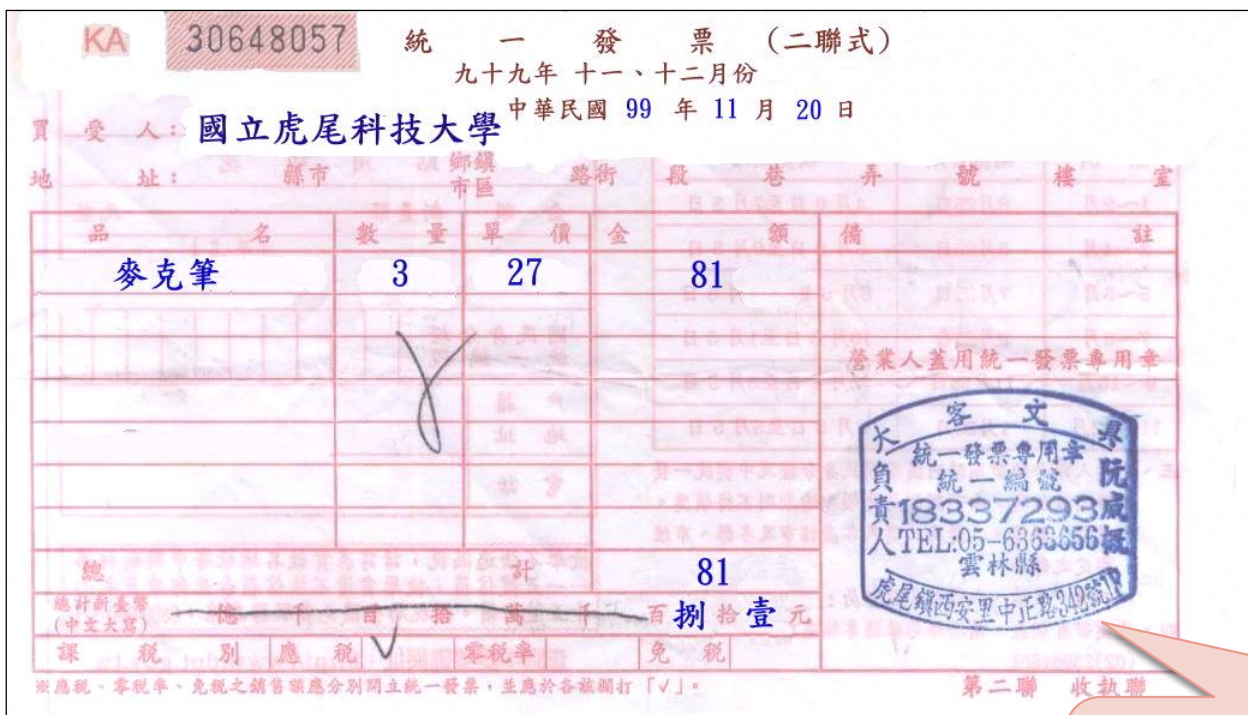 KA 30648057 統一發票(二聯式)
九十九年 十一、十二月份
中華民國 99 年 11 月 20 日
買受人：國立虎尾科技大學
地址： 縣市 鄉鎮市區 路街 段 巷 弄 號 樓 室
品名 數量 單價 金額 備註
麥克筆 3 27 81
營業人蓋用統一發票專用章
大客文具
統一發票專用章
統一編號
18337293
負責人 阮威
TEL:05-6363656
雲林縣
虎尾鎮西安里中正路342號1F
總計 81
總計新臺幣(中文大寫) 億 千 百 拾 萬 千 百 捌 拾 壹 元
課稅別 應稅 √ 零稅率 免稅
※應稅、零稅率、免稅之銷售額應分別開立統一發票，並應於各該欄打「√」。
第二聯 收執聯